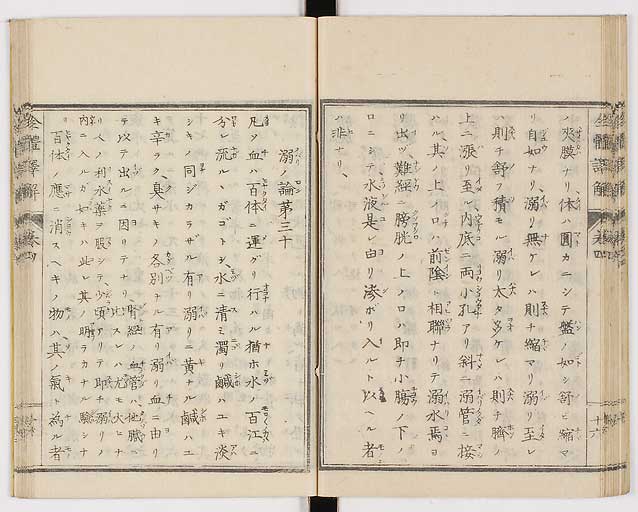 ノ夾膜ナリ、体ハ圓カニシテ盤ノ如シ舒ヒ縮マ
リ自如ナリ、溺リ無ケレハ則チ縮マリ溺リ至レ
ハ則チ舒フ積モル溺リ太タ多ケレハ則チ臍ノ
上ニ漲リ至レ内底ニ両小孔アリ斜ニ溺管ニ接
ハル其ノ上イロハ前陰ト相聯ナリテ溺水焉ヨ
リ出ツ難経ニ膀胱ノ上ノロハ即チ小腸ノ下ノ
ロニシテ水液是レ由リ滲ボリ入ルト以ヘル者
ハ非ナリ、
全體譯解 卷四
十六
溺ノ論第三十
凡ソ血ハ百体ニ運グリ行ハル猶ホ水ノ百江ニ
分レ流ルヽガゴトシ、水ニ清ミ濁リ鹹ハユキ淡
シキノ同シカラザル有リ溺リニ黄ナル鹹ハユ
キ辛ラク臭サキノ各別ナル有リ溺リ血ニ由リ
テ以テ出ルニ因リテナリ、
内腎経ノ血管ハ他臓ニ
比スレハ尤モ大ヒナ
リ人ノ利水藥ヲ服シテ少頃アリテ即チ溺リノ
内ニ入ルガ如キハ此レ其ノ明ラカナル驗シナ
百体ノ應ニ消スヘキノ物ハ其ノ氣ト為ル者
全體譯解 卷四